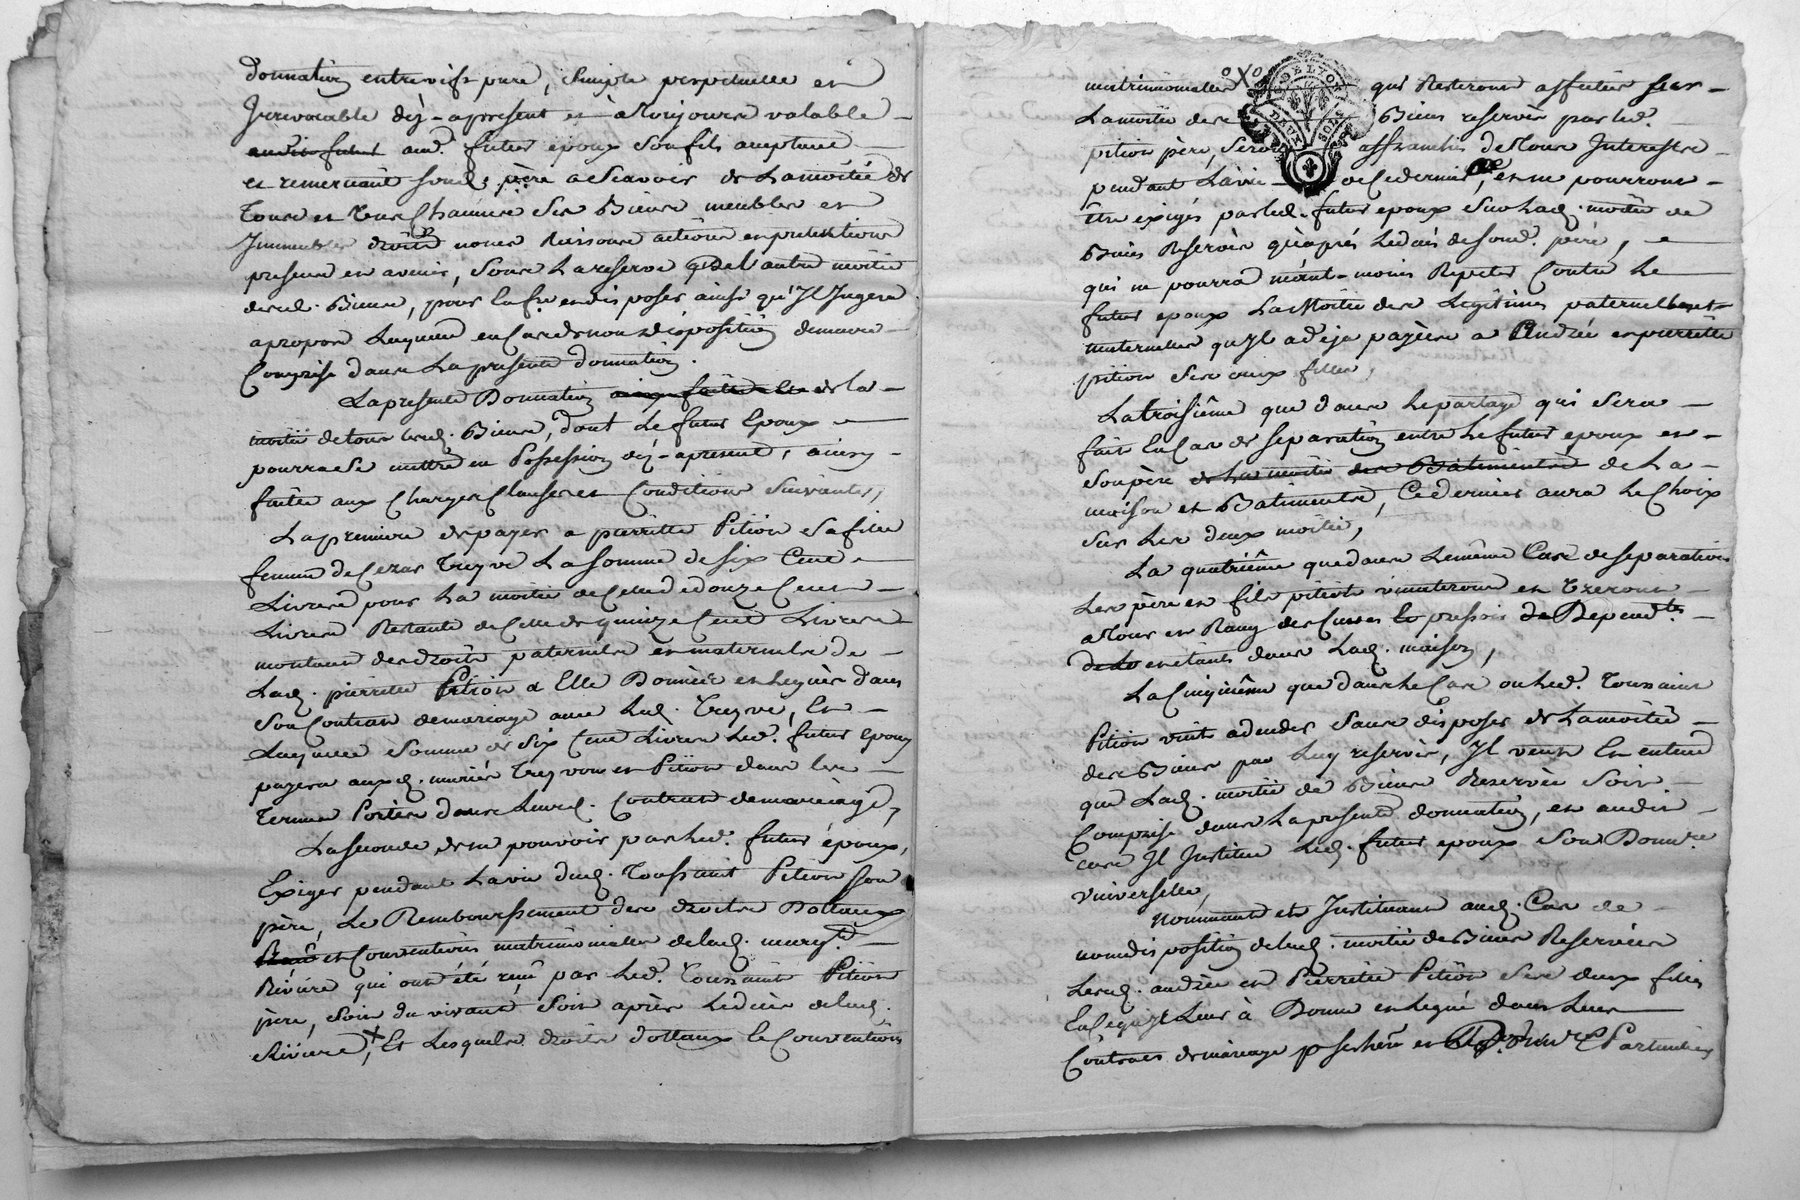 donnation entrevifs pure, simple perpetuelle et
Irrevocable dez-apresent et à toujours valable
audit futur aud. futur epoux son fils acceptant
et remerciant sond. père a Scavoir de Lamoitié de
Tous et Uns Chacuns Ses Biens meubles et
Immeubles droits noms Raisons actions en pretentions
presens en avenir, Sous La reserve de L'autre moitié
desd. Biens, pour En disposer ainsi qu'Il Jugera
apropos Laquelle en Cas de non disposition demeure
Comprise dans La presente donnation.
La presente Donnation ainsy faitte de la
moitié de tous lesd. Biens, dont Le futur Epoux
pourra Se mettre en Possession dez-apresent, ainsy
faitte aux Charges Clauses et Conditions Suivantes,
La premiere de payer a pierrette Pition Sa fille
femme de Cezar Treyve La Somme de Six Cent
Livres pour La moitié de Celle de douze Cent
Livres Restante de Celle de quinze Cent Livres
montant des droits paternels et maternels de
Lad. pierrette Pition a Elle Donnée et Leguée dans
Son Contrat de mariage avec Led. Treyve, En
Laquelle Somme de Six Cent Livres Led. futur Epoux
payera auxd. mariés Treyvoux et Pition dans Les
Termes Portés dans Leurd. Contrat de mariage,
La Seconde de ne pouvoir par Led. futur époux,
Exiger pendant La vie dud. Toussaint Pition Son
père, Le Remboursement des droits Dottaux
et Conventions matrimonialles de lad. marg.te
Riviere qui ont été reçu par Led. Toussaint Pition
père, Soit du vivant Soit après Le decès de lad.
Riviere, Et Lesquels droits dottaux et Conventions
matrimonialles qui Resteront affectés sur
La moitié des Biens reservés par led.
pition père, Seront affranchis de Tous Interests
pendant La vie de Ce dernier, et ne pourront
être exigés par led. futur epoux Sur Lad. moitié de
Biens Reservés qu'après Le decès de Sond. père,
qui ne pourra néant-moins Repeter Contre Le
futur epoux La Moitié des Legitimes paternelles et
maternelles qu'Il a deja payées a Andrée et pierrette
pition Ses deux filles,
La troisième que dans Le partage qui Sera
fait En Cas de Separation entre Le futur epoux et
Son père de La moitié des Batiments de La
maison et Batiments, Ce dernier aura Le Choix
Sur Les deux moitié,
La quatrième que dans Le même Cas de Separation
Les père et fils pition
a tour et Rang des Cuves et pressoir de Depend.tes
etants dans Lad. maison,
La Cinquième que dans Le Cas ou Led. Toussaint
Pition vint a deceder Sans disposer de La moitié
des Biens par Luy reservés, Il veut En entend
que Lad. moitié de Biens Reservée Soit
Comprise dans La presente donnation, et audit
cas Il Institue Led. futur epoux Son Donn.re
Universelle,
Nommant et Instituant aud. Cas de
nondisposition de lad. moitié de Biens Reservées
Lesd. andrée et Pierrette Pition Ses deux filles
En Ce qu'Il Leur à Donné et Legué dans Leur
Contrats de mariage p.r Ses her.es et Particulieres